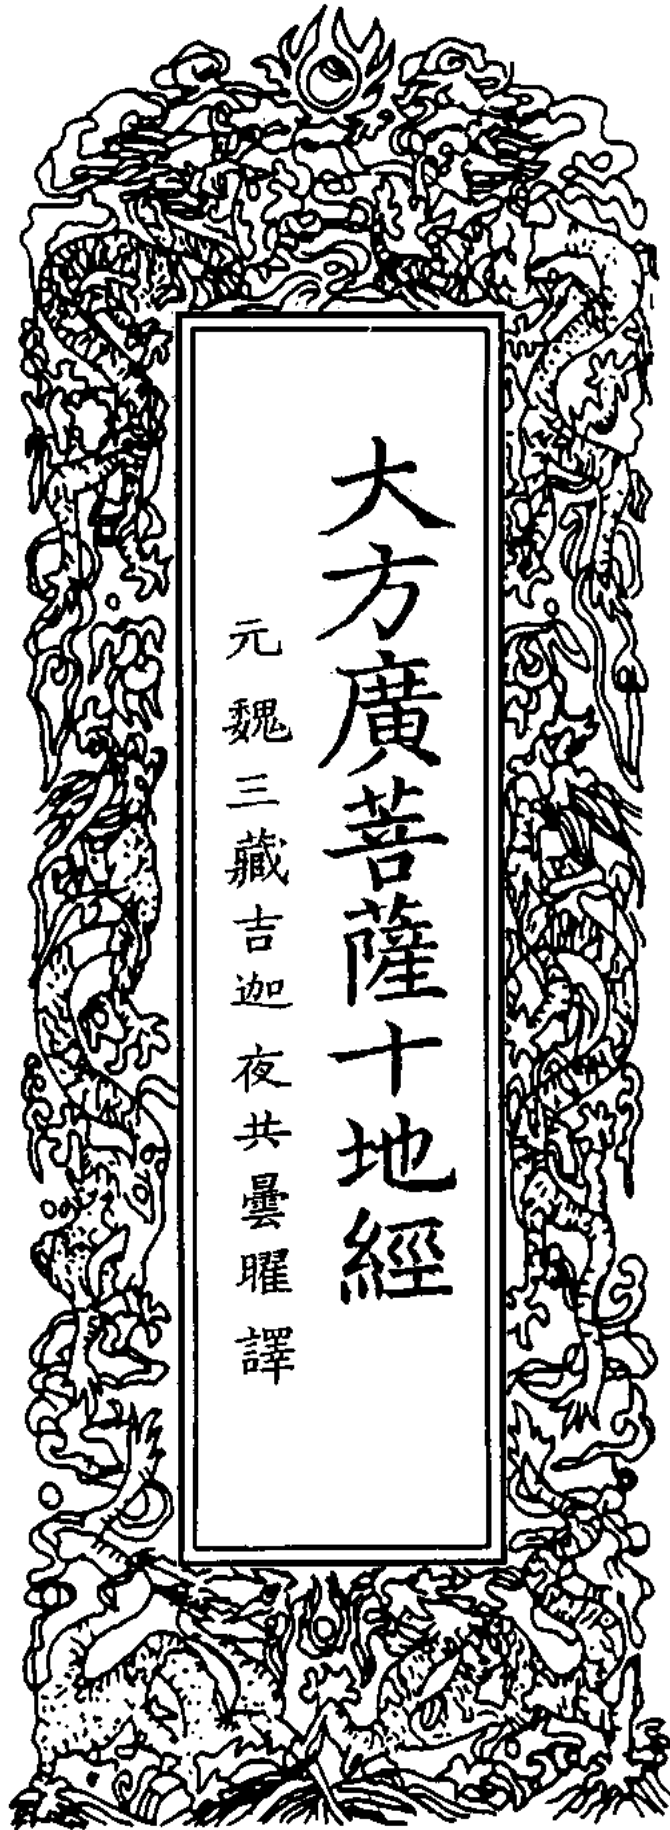 大方廣菩薩十地經
元魏三藏吉迦夜共曇曜譯